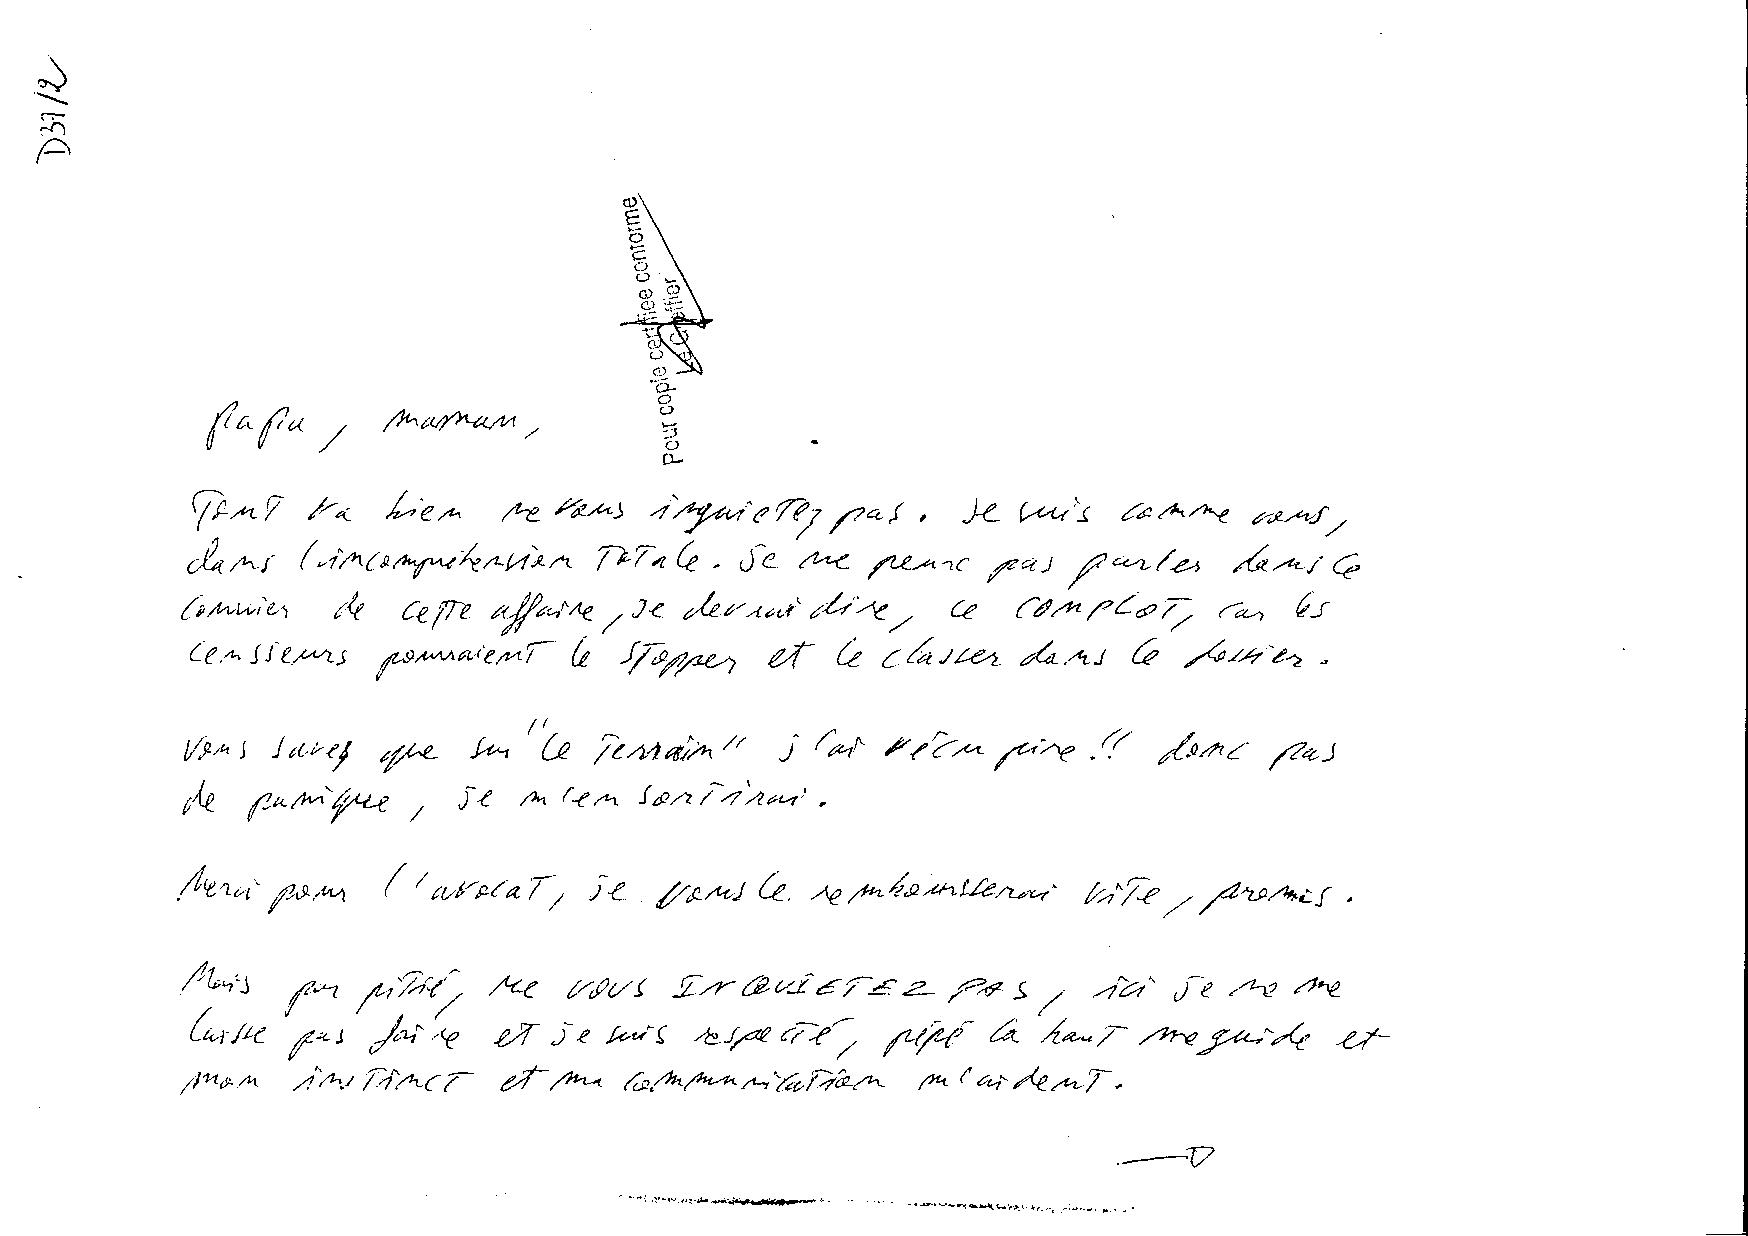 D37/2
Pour copie certifiée conforme
Le Greffier
papa, maman,
Tout va bien ne vous inquietez pas. Je suis comme vous,
dans l'incompréhension totale. Je ne peux pas parler dans ce
courrier de cette affaire, je devrai dire, ce COMPLOT, car les
censseurs pouraient le stopper et le classer dans le dossier.
Vous savez que sur "le terrain" j'ai vécu pire!! donc pas
de panique, je m'en sortirai.
Merci pour l'avocat, je vous le rembourserai vite, promis.
Mais par pitié, ne vous INQUIETEZ PAS, ici je ne me
laisse pas faire et je suis respecté, pépé la haut me guide et
mon instinct et ma communication m'aident.